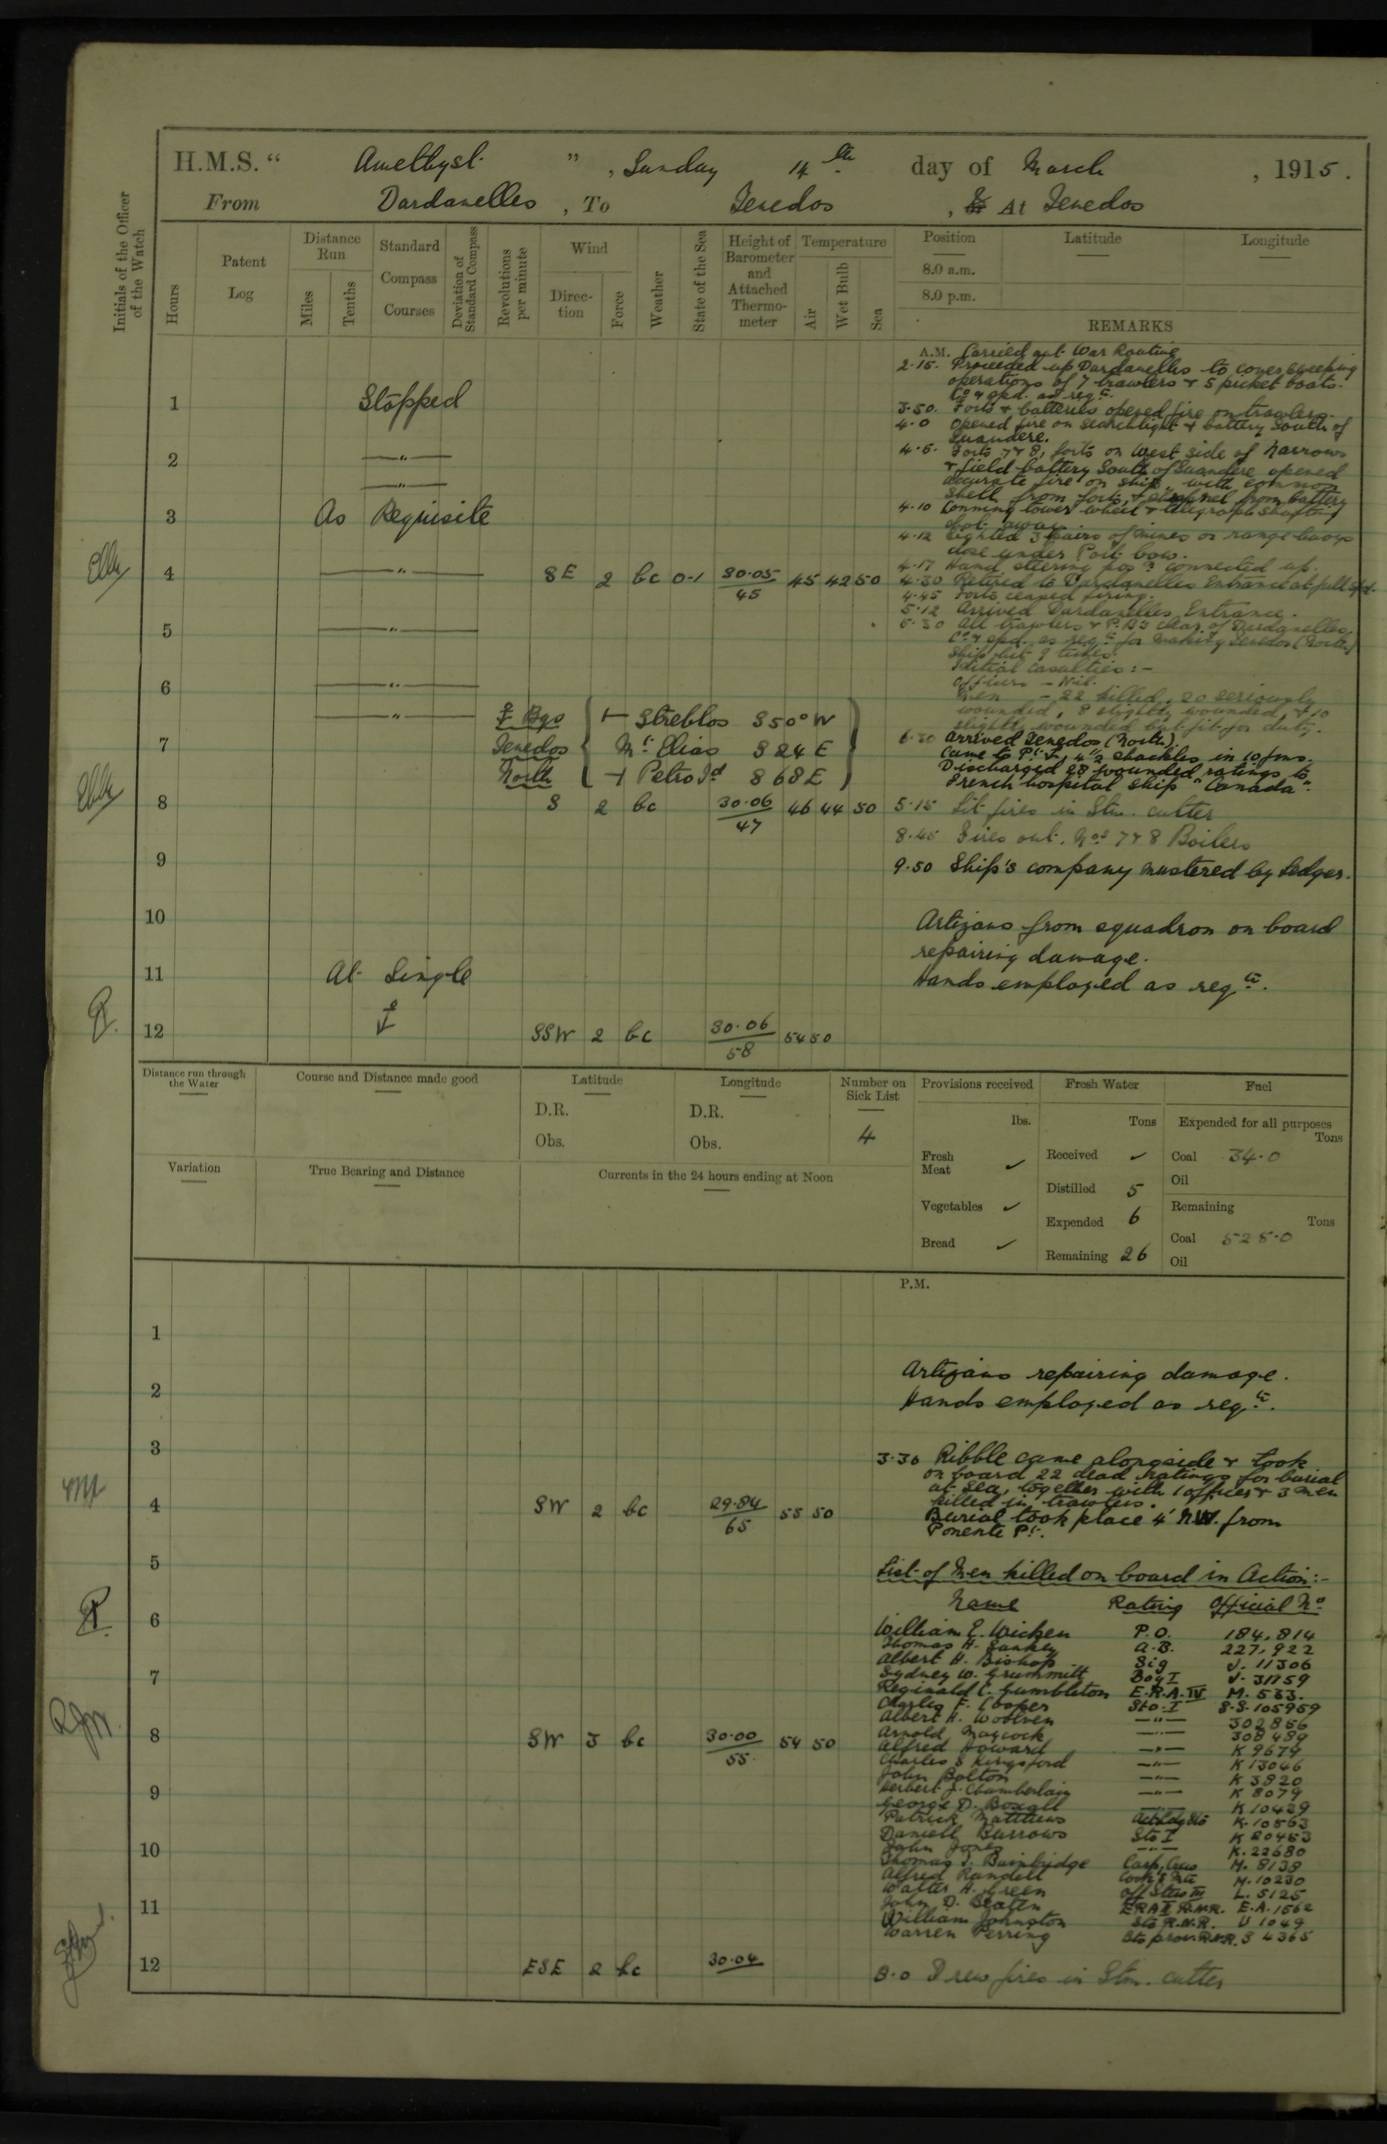 H.M.S. “ Amethyst ” , Sunday 14th day of March , 1915.
From Dardanelles , To Tenedos , At Tenedos
Initials of the Officer of the Watch
Hours
Patent Log
Distance Run
Miles
Tenths
Standard Compass Courses
Deviation of Standard Compass
Revolutions per minute
Wind
Direction
Force
Weather
State of the Sea
Height of Barometer and Attached Thermometer
Temperature
Air
Wet Bulb
Sea
Position
Latitude
Longitude
8.0 a.m.
8.0 p.m.
REMARKS
A.M. Carried out War Routine
2.15. Proceeded up Dardanelles to cover sweeping
operations of 7 trawlers & 5 picket boats.
Co & spd. as reqte.
3.50. Forts & batteries opened fire on trawlers.
1 Stopped
4.0 Opened fire on searchlight & battery South of
Suandere.
4.5. Forts 7 & 8, forts on West side of Narrows
2 —"—
& field battery South of Suandere opened
accurate fire on ship, with common
—"—
shell from forts, & shrapnel from battery
3 As Requisite
4.10 Conning tower wheel & telegraph shafting
shot away.
4.12 Sighted 3 pairs of mines or range buoys
close under Port bow.
4.17 Hand steering posn connected up.
4 —"— SE 2 bc 0-1 30.05/45 45 42 50
4.30 Retired to Dardanelles Entrance at full spd.
4.45 Forts ceased firing.
5.12 Arrived Dardanelles Entrance.
5 —"—
5.30 All trawlers & P.Bs clear of Dardanelles.
Co & spd. as reqte for making Tenedos (North)
Ship hit 9 times.
Initial Casualties:-
6 —"—
Officers - Nil.
Men - 22 killed, 20 seriously
wounded, 8 slightly wounded, & 10
slightly wounded but fit for duty.
—"— Bgs Streblos S50°W
7 Tenedos Mt Elias S24E
North Petro Id S68E
6.30 Arrived Tenedos (North)
Came to Pt 4½ shackles in 10 fms.
Discharged 28 wounded ratings to
French hospital ship "Canada".
8 S 2 bc 30.06/47 46 44 50
5.15 Lit fires in Stm. cutter
8.45 Fires out. Nos 7 & 8 Boilers
9
9.50 Ship's company mustered by Ledger.
10
Artizans from squadron on board
repairing damage.
11 At Single
Hands employed as reqte.
12 SSW 2 bc 30.06/58 54 50
Distance run through the Water
Course and Distance made good
Latitude
D.R.
Obs.
Longitude
D.R.
Obs.
Number on Sick List
4
Provisions received
lbs.
Fresh Meat ✓
Vegetables ✓
Bread ✓
Fresh Water
Tons
Received ✓
Distilled 5
Expended 6
Remaining 26
Fuel
Expended for all purposes
Tons
Coal 34.0
Oil
Remaining
Tons
Coal 525.0
Oil
Variation
True Bearing and Distance
Currents in the 24 hours ending at Noon
P.M.
1
Artizans repairing damage.
2
Hands employed as reqte.
3
3.30 Ribble came alongside & took
on board 22 dead ratings for burial
at sea, together with 1 officer & 3 men
killed in trawlers.
4 SW 2 bc 29.84/65 55 50
Burial took place 4' NW. from
Ponente Pt.
5
List of Men killed on board in Action:-
Name Rating Official No
6
William E. Wicken P.O. 184,814
Thomas H. Sankey A.B. 227,922
Albert H. Bishop Sig J. 11306
Sydney W. Grummitt Boy I J. 31759
7
Reginald C. Gumbleton E.R.A. IV M. 533.
Charles F. Cooper Sto. I S.S. 105959
Albert H. Woolven —"— 302856
8 SW 3 bc 30.00/55 54 50
Arnold Maycock —"— 308489
Alfred Howard —"— K 9679
Charles S Kingsford —"— K 13046
John Bolton —"— K 3820
9
Herbert J. Chamberlain —"— K 8079
George D. Boxall K 10429
Patrick Matthews Act Ldg Sto K. 10563
Daniell Burrows Sto I K 20453
10
John Jones —"— K. 22680
Thomas J. Bainbridge Carp. Crew M. 8138
Alfred Randell Cook's Mte M. 10230
Walter H. Green Off Stew III L. 5125
11
John D. Beaten ERA I R.N.R. E.A. 1562
William Johnston Sto R.N.R. U 1049
Warren Perring Sto prov. R.N.R. S 4365
12 ESE 2 bc 30.04
8.0 Drew fires in Stm. cutter